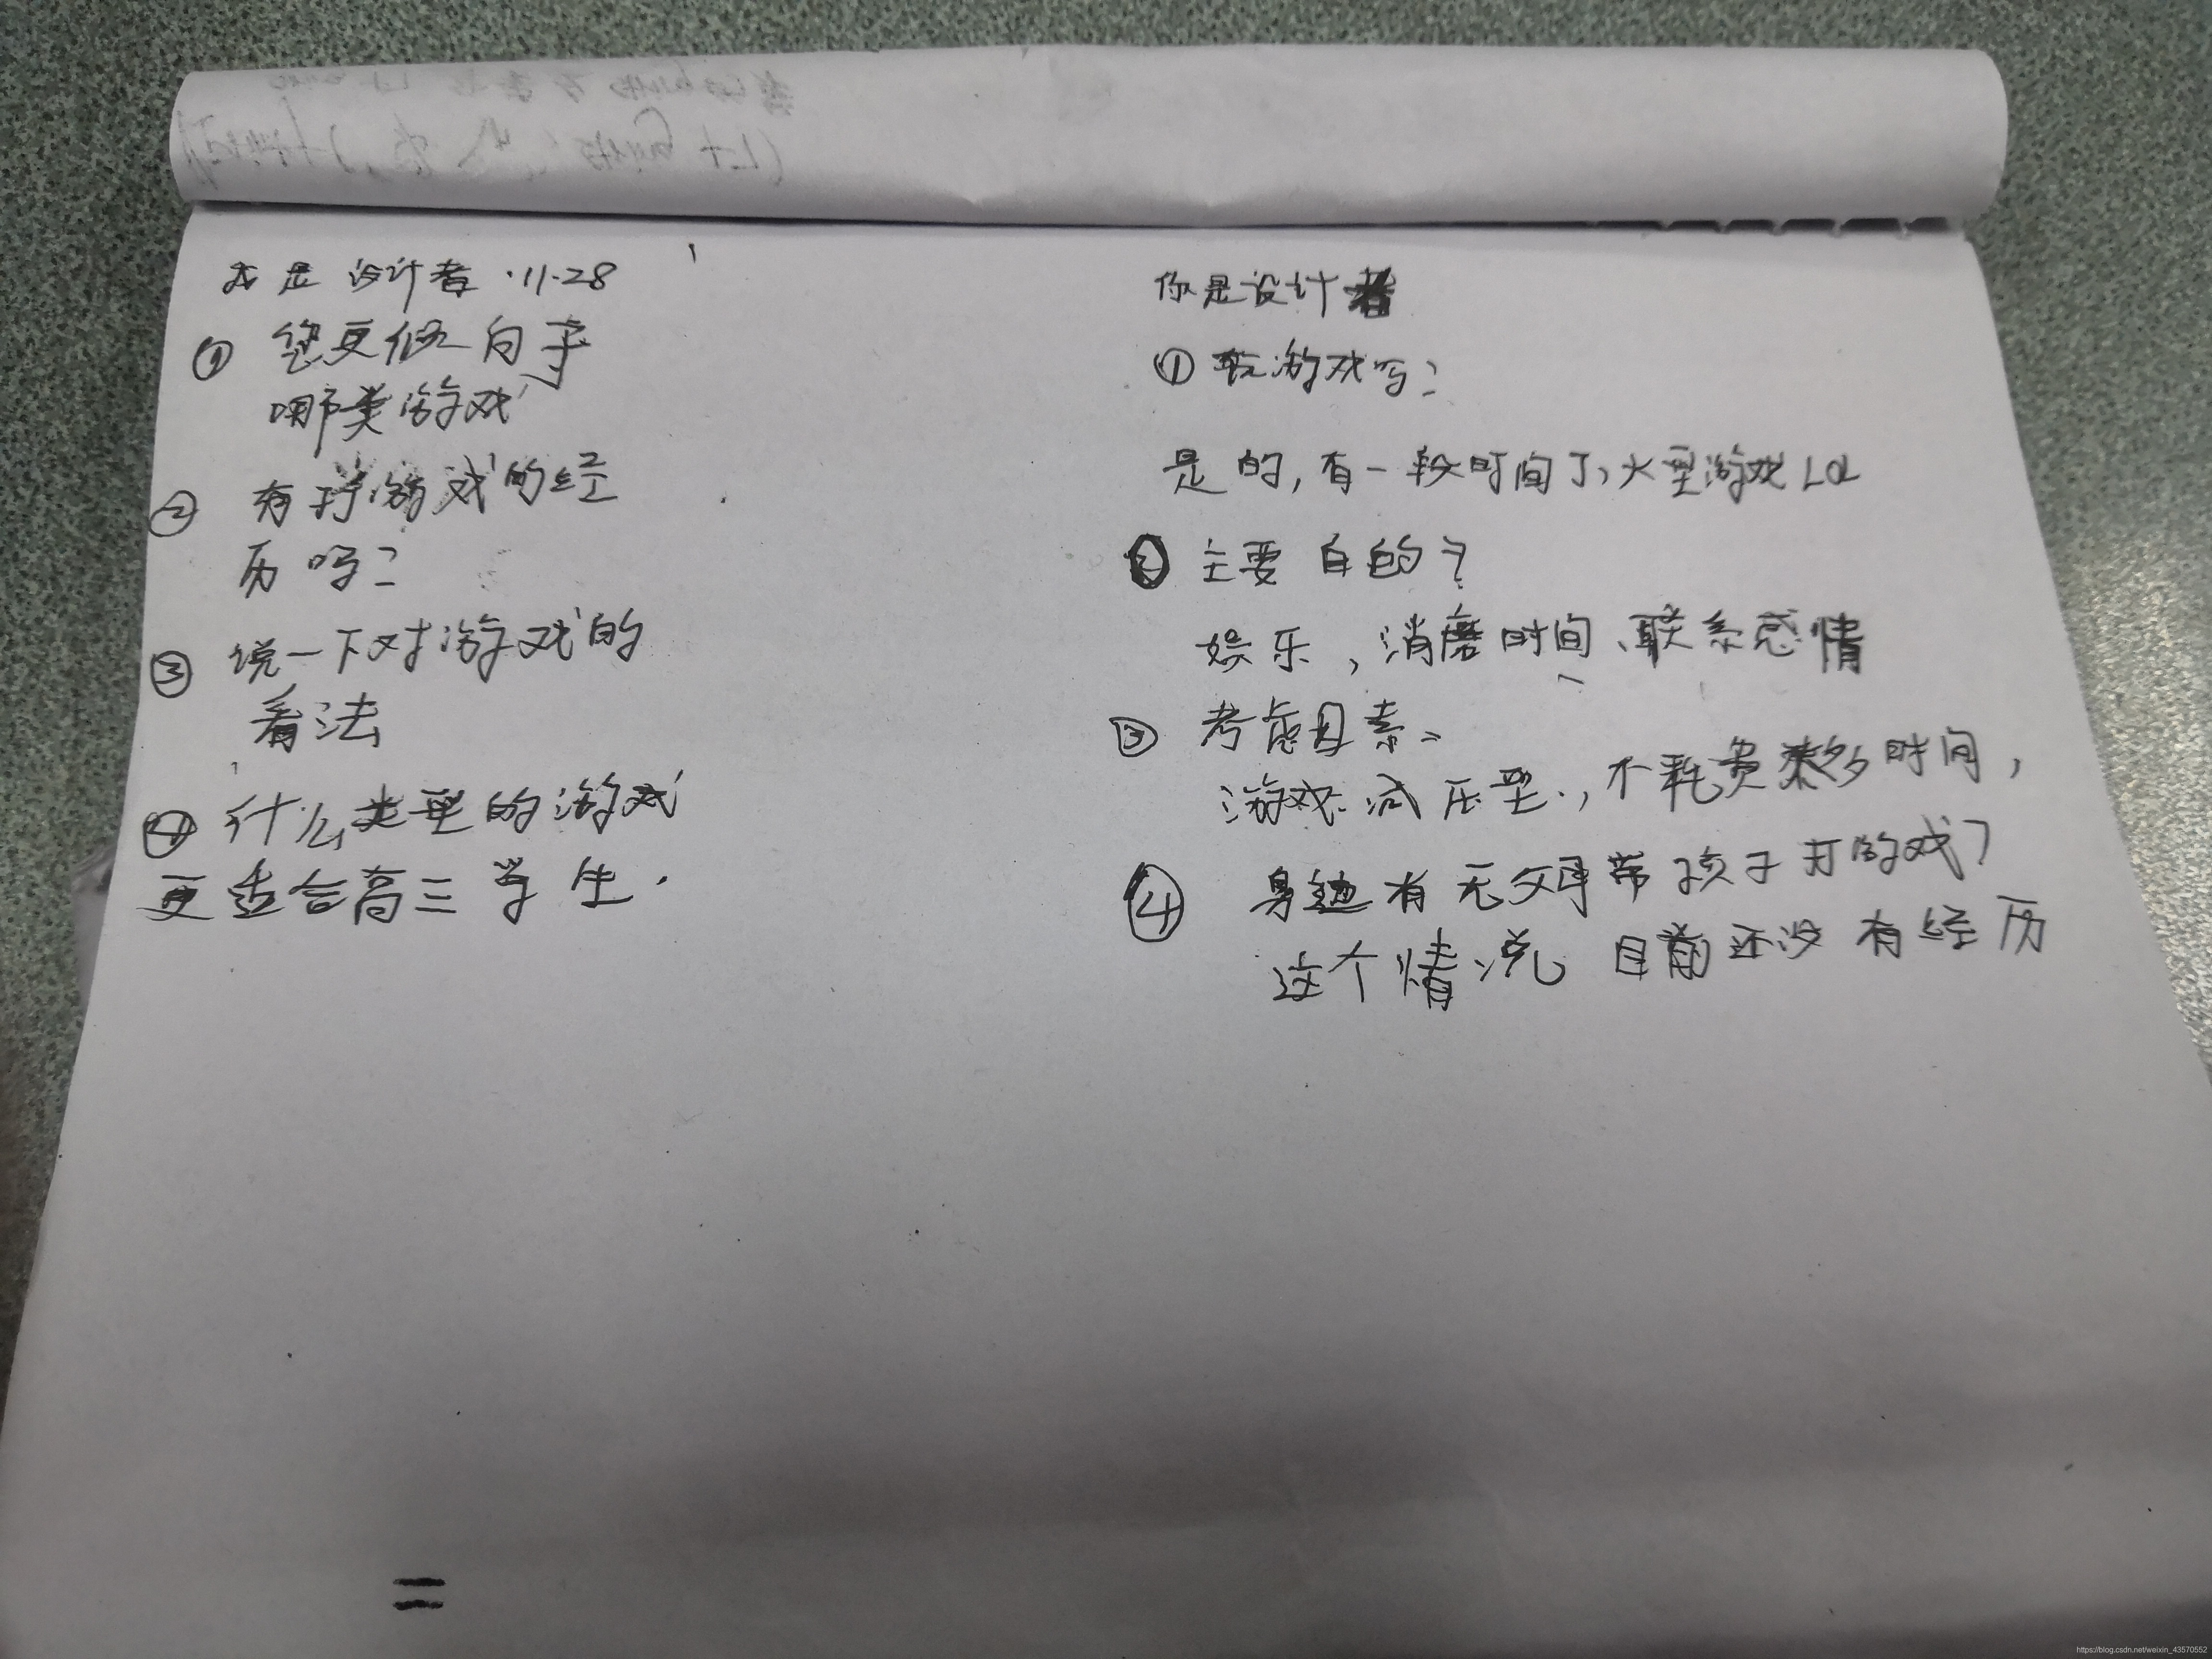 我是设计者 ·11·28
① 您更倾向于
哪类游戏
② 有玩游戏的经
历吗?
③ 说一下对游戏的
看法
④ 什么类型的游戏
更适合高三学生.
你是设计者
① 玩游戏吗?
是的,有一段时间了,大型游戏LOL
② 主要目的?
娱乐,消磨时间、联系感情
③ 考虑因素、
游戏减压型.,不耗费太多时间,
④ 身边有无父母带孩子打游戏?
这个情况 目前还没有经历
=
https://blog.csdn.net/weixin_43570552